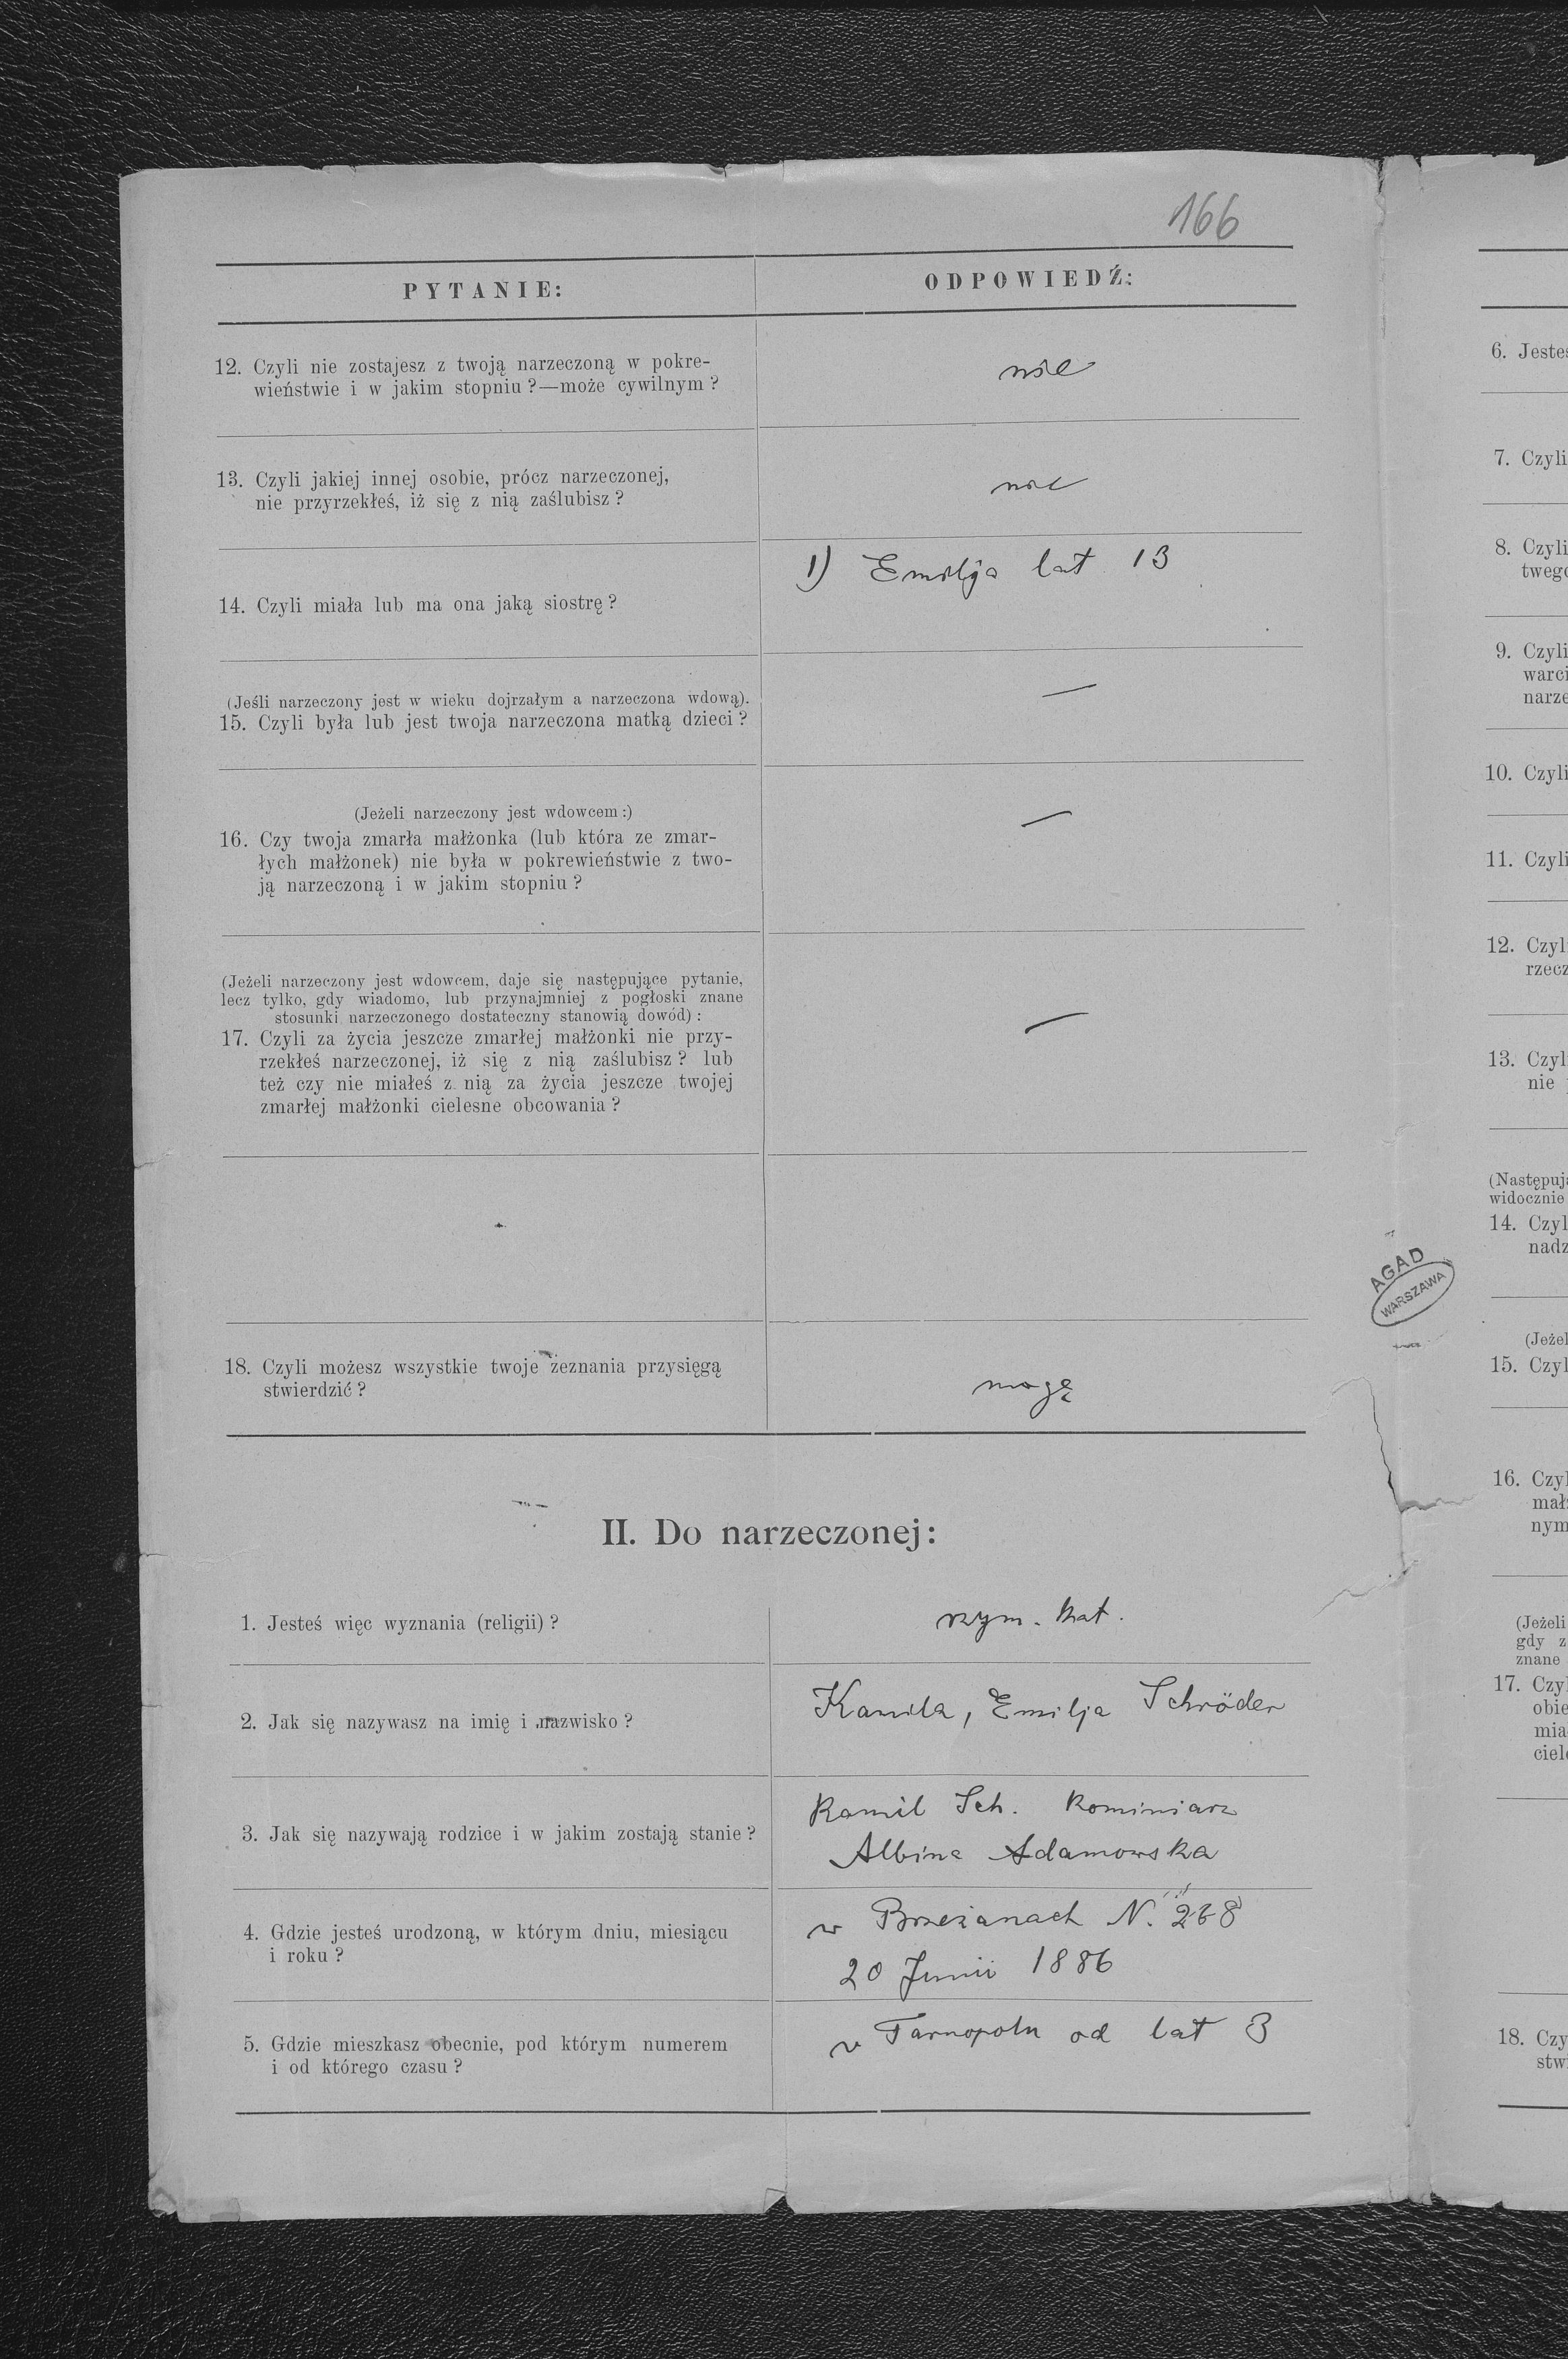 166
PYTANIE:
ODPOWIEDŹ:
12. Czyli nie zostajesz z twoją narzeczoną w pokre-
wieństwie i w jakim stopniu ?—może cywilnym ?
nie
13. Czyli jakiej innej osobie, prócz narzeczonej,
nie przyrzekłeś, iż się z nią zaślubisz ?
nie
14. Czyli miała lub ma ona jaką siostrę ?
1) Emilja lat 13
(Jeśli narzeczony jest w wieku dojrzałym a narzeczona wdową).
15. Czyli była lub jest twoja narzeczona matką dzieci ?
—
(Jeżeli narzeczony jest wdowcem :)
16. Czy twoja zmarła małżonka (lub która ze zmar-
łych małżonek) nie była w pokrewieństwie z two-
ją narzeczoną i w jakim stopniu ?
—
(Jeżeli narzeczony jest wdowcem, daje się następujące pytanie,
lecz tylko, gdy wiadomo, lub przynajmniej z pogłoski znane
stosunki narzeczonego dostateczny stanowią dowód) :
17. Czyli za życia jeszcze zmarłej małżonki nie przy-
rzekłeś narzeczonej, iż się z nią zaślubisz ? lub
też czy nie miałeś z nią za życia jeszcze twojej
zmarłej małżonki cielesne obcowania ?
—
18. Czyli możesz wszystkie twoje zeznania przysięgą
stwierdzić ?
mogę
II. Do narzeczonej:
1. Jesteś więc wyznania (religii) ?
rzym. kat.
2. Jak się nazywasz na imię i nazwisko ?
Kamila, Emilja Schröder
3. Jak się nazywają rodzice i w jakim zostają stanie ?
Kamil Sch. kominiarz
Albina Adamowska
4. Gdzie jesteś urodzoną, w którym dniu, miesiącu
i roku ?
w Brzeżanach N. 268
20 Junii 1886
5. Gdzie mieszkasz obecnie, pod którym numerem
i od którego czasu ?
w Tarnopolu od lat 3
AGAD
WARSZAWA
6. Jesteś
7. Czyli
8. Czyli
twego
9. Czyli
warci
narze
10. Czyli
11. Czyli
12. Czyl
rzecz
13. Czyl
nie
(Następuj
widocznie
14. Czyl
nadz
(Jeżel
15. Czyl
16. Czyl
mał
nym
(Jeżeli
gdy z
znane
17. Czyl
obie
mia
ciel
18. Czy
stw